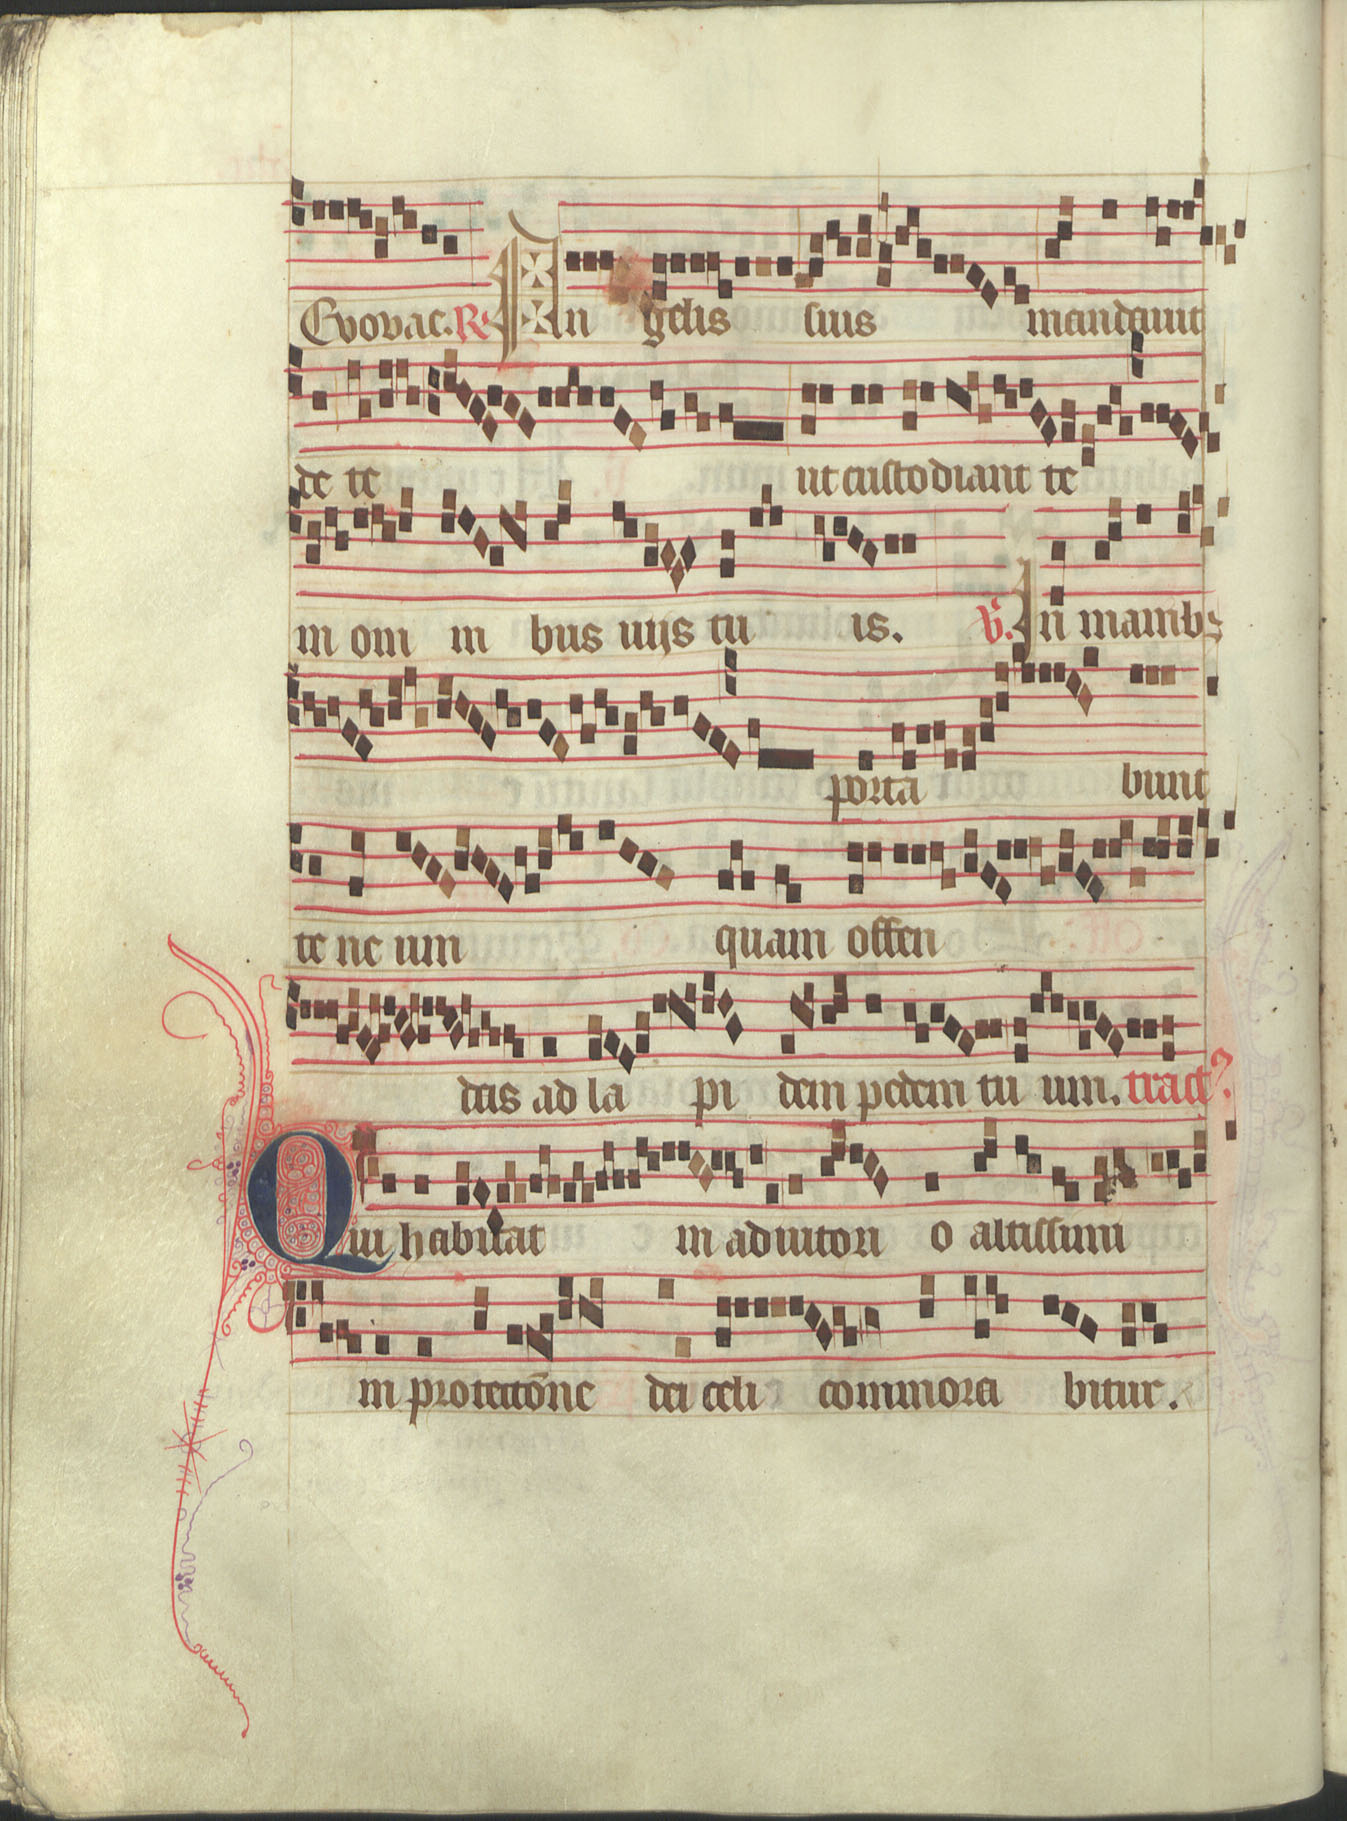 Evovae. R. Angelis suis mandauit
de te ut custodiant te
in om ni bus uijs tu is. V. In manibs
porta bunt
te ne um quam offen
das ad la pi dem pedem tu um. tract
Qui habitat in adiutori o altissimi
in protectōne dei celi commora bitur.